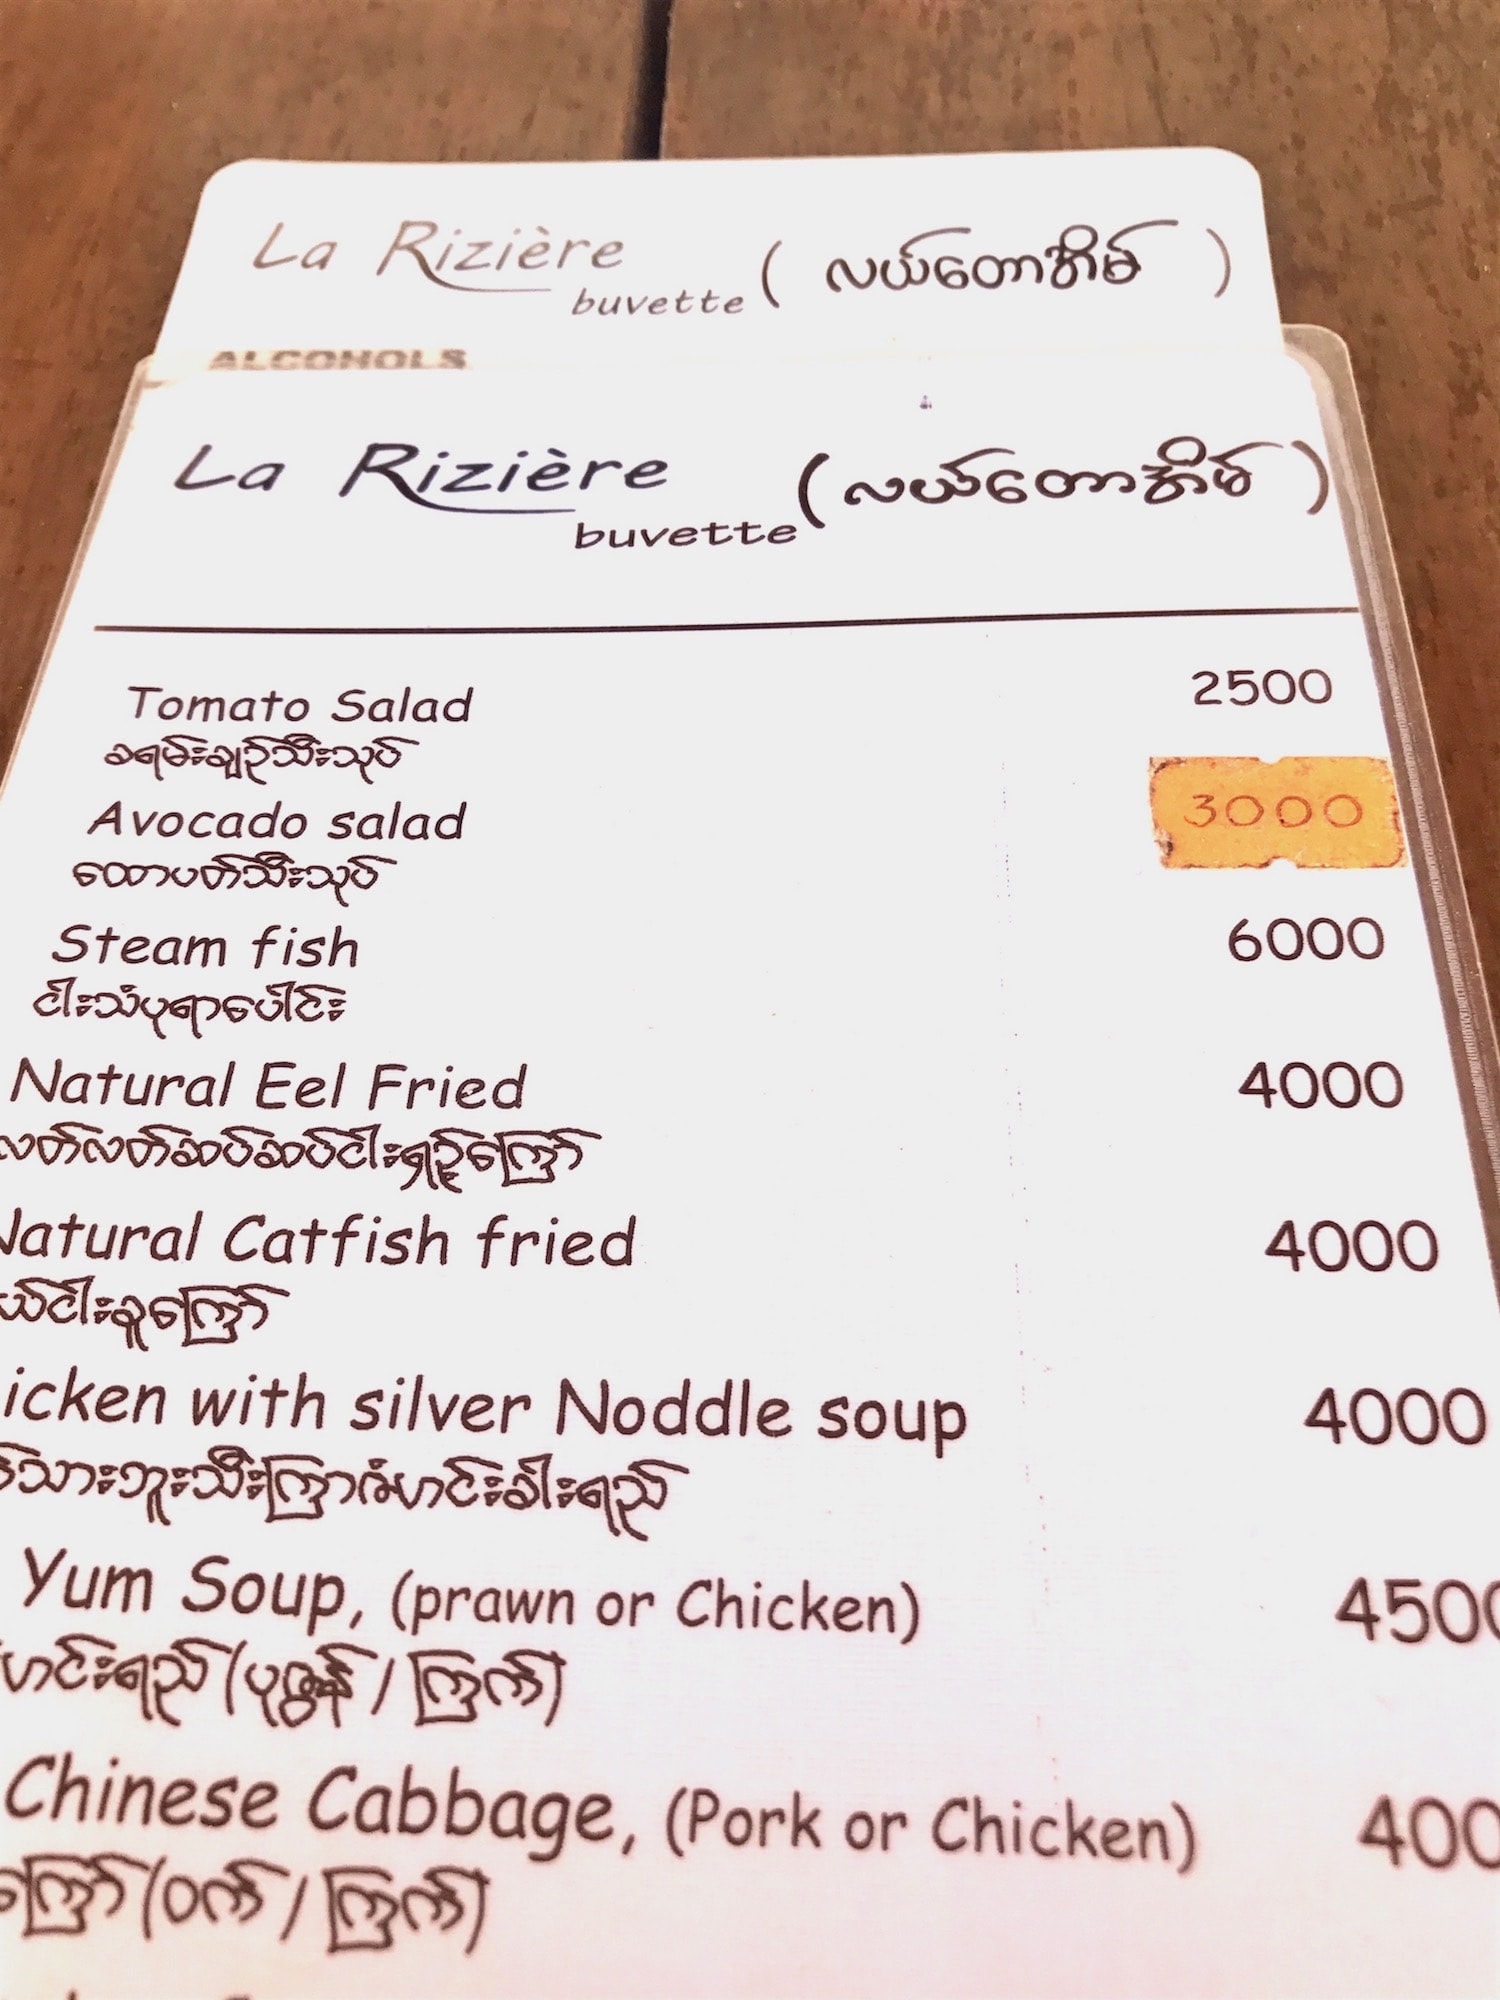 La Rizière
buvette ( လယ်တောအိမ် )
ALCOHOLS
La Rizière
buvette ( လယ်တောအိမ် )
Tomato Salad 2500
ခရမ်းချဉ်သီးသုပ်
Avocado salad 3000
ထောပတ်သီးသုပ်
Steam fish 6000
ငါးသံပုရာပေါင်း
Natural Eel Fried 4000
လတ်လတ်ဆပ်ဆပ်ငါးရှဉ့်ကြော်
Natural Catfish fried 4000
ယ်ငါးခူကြော်
icken with silver Noddle soup 4000
သားဘူးသီးကြာဇံဟင်းခါးရည်
Yum Soup, (prawn or Chicken) 4500
ဟင်းရည် (ပုဇွန် / ကြက်)
Chinese Cabbage, (Pork or Chicken) 400
ကြော် (ဝက် / ကြက်)